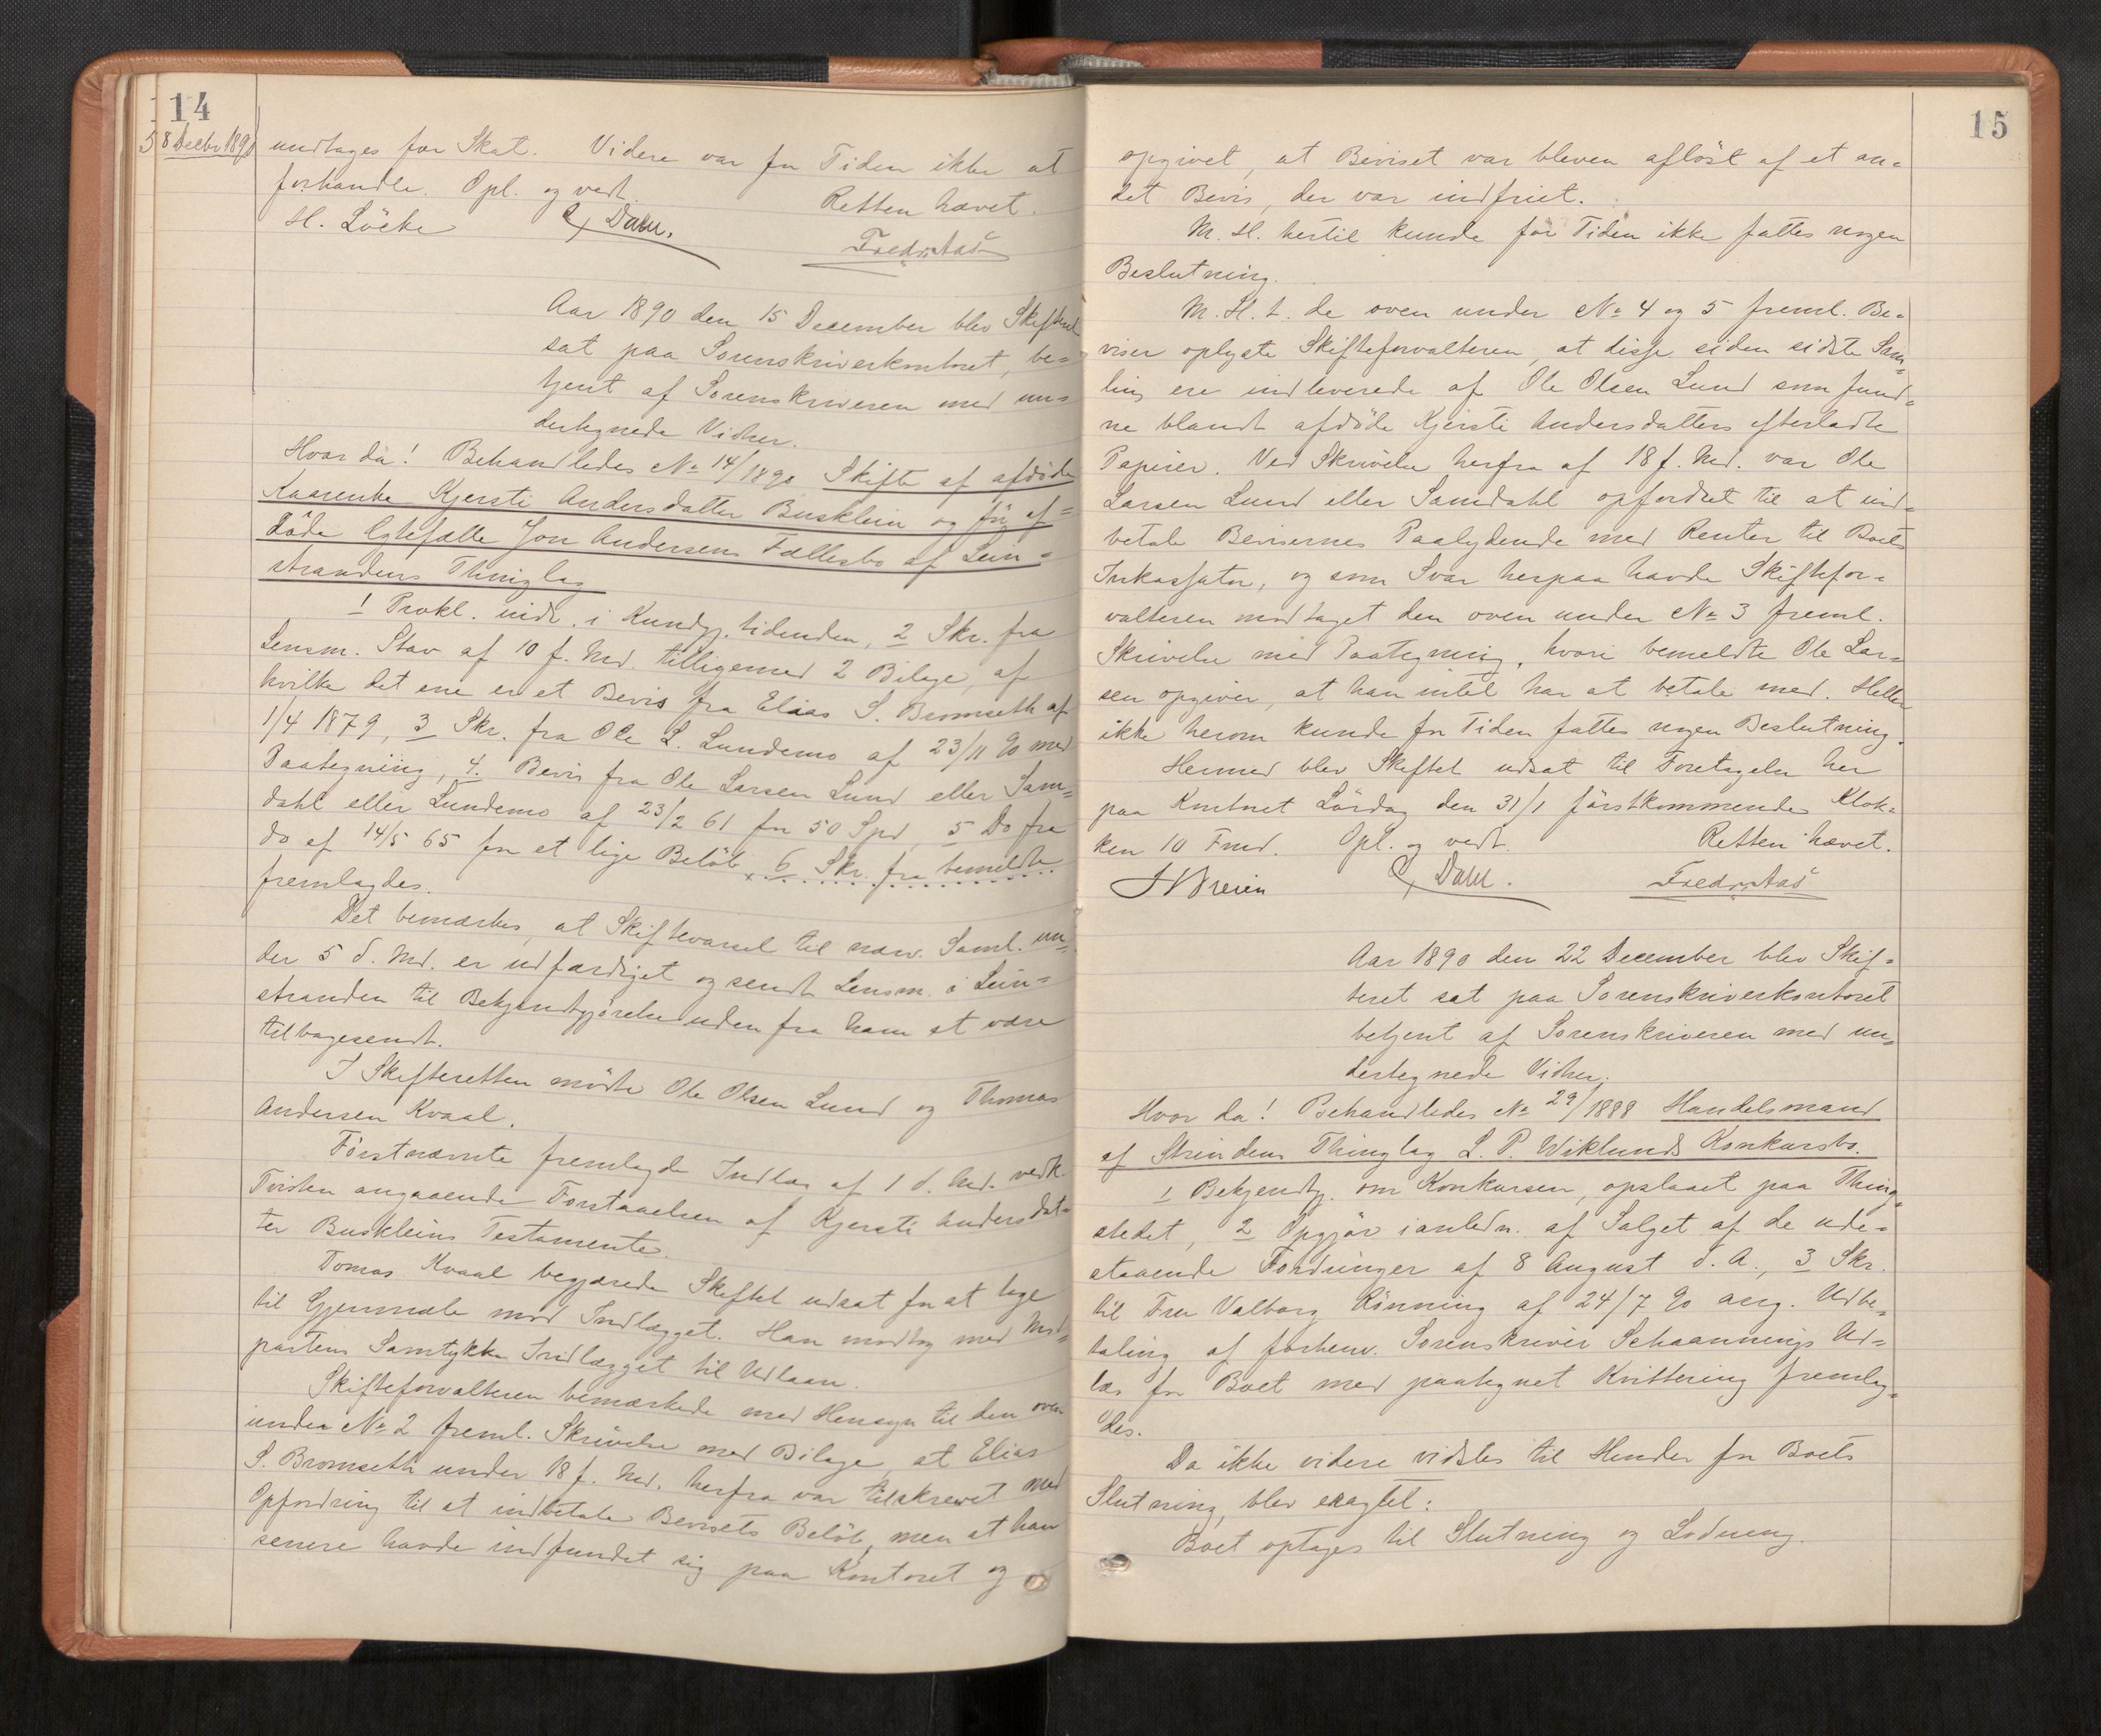 14
8 Decbr 1890
undtages for Skat. Videre var for Tiden ikke at
forhandle. Opl. og vedt. Retten hævet.
H. Löcke Dahl. Fredr. Aas
Aar 1890 den 15 December blev Skifteret
sat paa Sorenskriverkontoret, be=
tjent af Sorenskriveren med un=
dertegnede Vidner.
Hvor da! Behandledes No 14/1890 Skifte af afdöde
Kaarenke Kjersti Andersdatter Busklein og før af=
döde Egtefælle Jon Andersens Fællesbo af Lein=
strandens Thinglag
1 Prokl. indr. i Kundgj. tidenden, 2 Skr. fra
Lensm. Stav af 10 f. Md. tilligemed 2 Bilage, af
hvilke det ene er et Bevis fra Elias S. Bromseth af
1/4 1879, 3 Skr. fra Ole L. Lundemo af 23/11 90 med
Paategning, 4. Bevis fra Ole Larsen Lund eller Sam=
dahl eller Lundemo af 23/2 61 for 50 Spd, 5 Do fra
do af 14/5 65 for et lige Belöb, 6 Skr. fra bemeldte
fremlagdes.
Det bemærkes, at Skiftevarsel til nærv. Saml. un=
der 5 d. Md. er udfærdiget og sendt Lensm. i Lein=
stranden til Bekjendtgjörelse uden fra ham at være
tilbagesendt.
I Skifteretten mödte Ole Olsen Lund og Thomas
Andersen Kvaal.
Förstnævnte fremlagde Indlæg af 1 d. Md. vedk.
Tvisten angaaende Forstaaelsen af Kjersti Andersdat=
ter Buskleins Testamente.
Tomas Kvaal begjærede Skiftet udsat for at tage
til Gjenmæle mod Indlægget. Han modtog med Mod=
partens Samtykke Indlægget til Udlaan.
Skifteforvalteren bemærkede med Hensyn til den oven
under No 2 freml. Skrivelse med Bilage, at Elias
S. Bromseth under 18 f. Md. herfra var tilskrevet med
Opfordring til at indbetale Bevisets Belöb, men at han
senere havde indfundet sig paa Kontoret og
15
opgivet, at Beviset var bleven aflöst af et an=
det Bevis, der var indfriet.
M. H. hertil kunde for Tiden ikke fattes nogen
Beslutning.
M. H. t. de oven under No 4 og 5 freml. Be=
viser oplyste Skifteforvalteren, at disse siden sidste Sam=
ling ere indleverede af Ole Olsen Lund som fund=
ne blandt afdöde Kjersti Andersdatters efterladte
Papirer. Ved Skrivelse herfra af 18 f. Md. var Ole
Larsen Lund eller Samdahl opfordret til at ind=
betale Bevisernes Paalydende med Renter til Boets
Inkassator, og som Svar herpaa havde Skiftefor=
valteren modtaget den oven under No 3 freml.
Skrivelse med Paategning, hvori bemeldte Ole Lar=
sen opgiver, at han intet har at betale med. Heller
ikke herom kunde for Tiden fattes nogen Beslutning.
Hermed blev Skiftet udsat til Foretagelse her
paa Kontoret Lördag den 31/1 förstkommende Klok=
ken 10 Fmd. Opl. og vedt. Retten hævet.
Dahl. Fredr. Aas
Aar 1890 den 22 December blev Skif=
teret sat paa Sorenskriverkontoret
betjent af Sorenskriveren med un=
dertegnede Vidner.
Hvor da! Behandledes No 29/1888 Handelsmand
af Strindens Thinglag L. P. Wiklunds Konkursbo.
1 Bekjendtg. om Konkursen, opslaaet paa Thing=
stedet, 2 Opgjör i anledn. af Salget af de ude=
staaende Fordringer af 8 August d. A., 3 Skr.
til Fru Valborg Rönning af 24/7 90 ang. Udbe=
taling af forhenv. Sorenskriver Schaannings Ud=
læg for Boet med paategnet Kvittering fremlag=
des.
Da ikke videre vidstes til Hinder for Boets
Slutning, blev eragtet:
Boet optages til Slutning og Lodning.